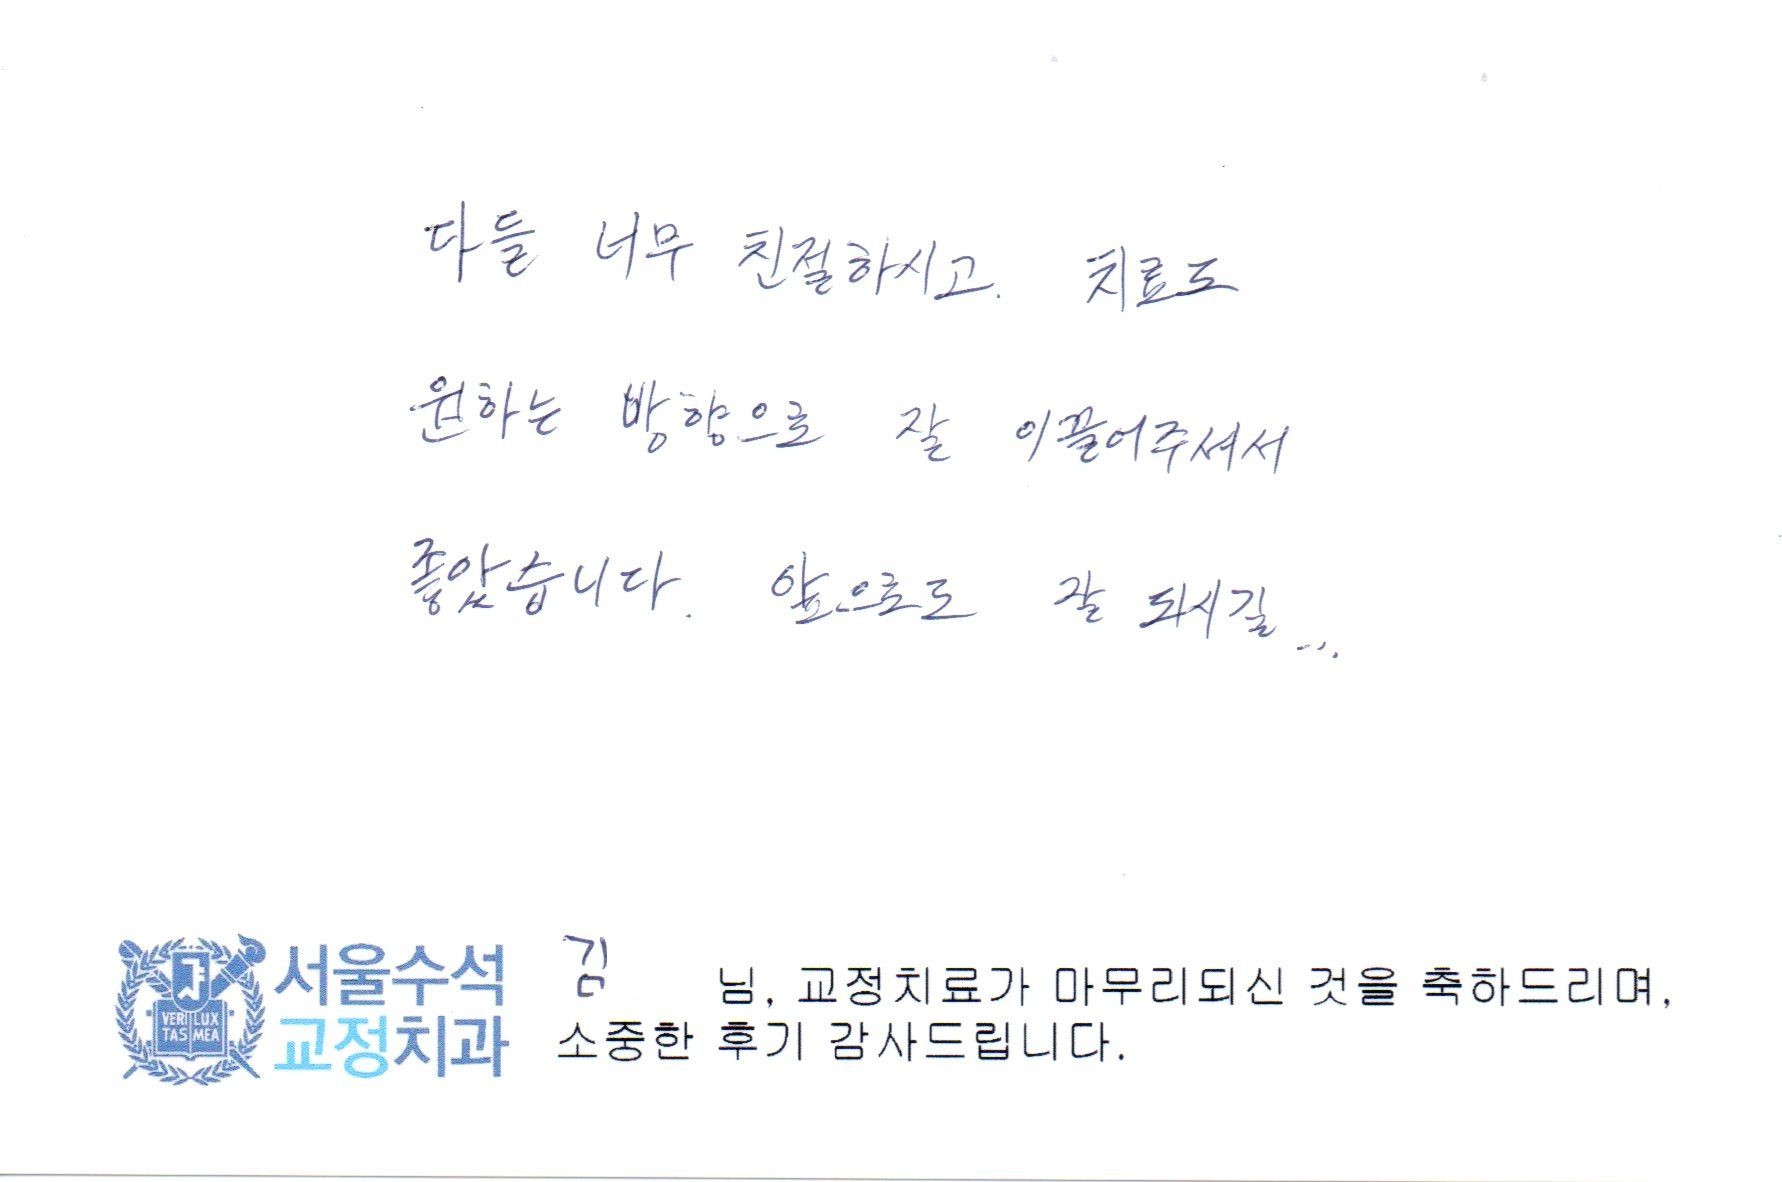 다들 너무 친절하시고. 치료도
원하는 방향으로 잘 이끌어주셔서
좋았습니다. 앞으로도 잘 되시길...
VERI LUX
TAS MEA
서울수석
교정치과
김 님, 교정치료가 마무리되신 것을 축하드리며,
소중한 후기 감사드립니다.